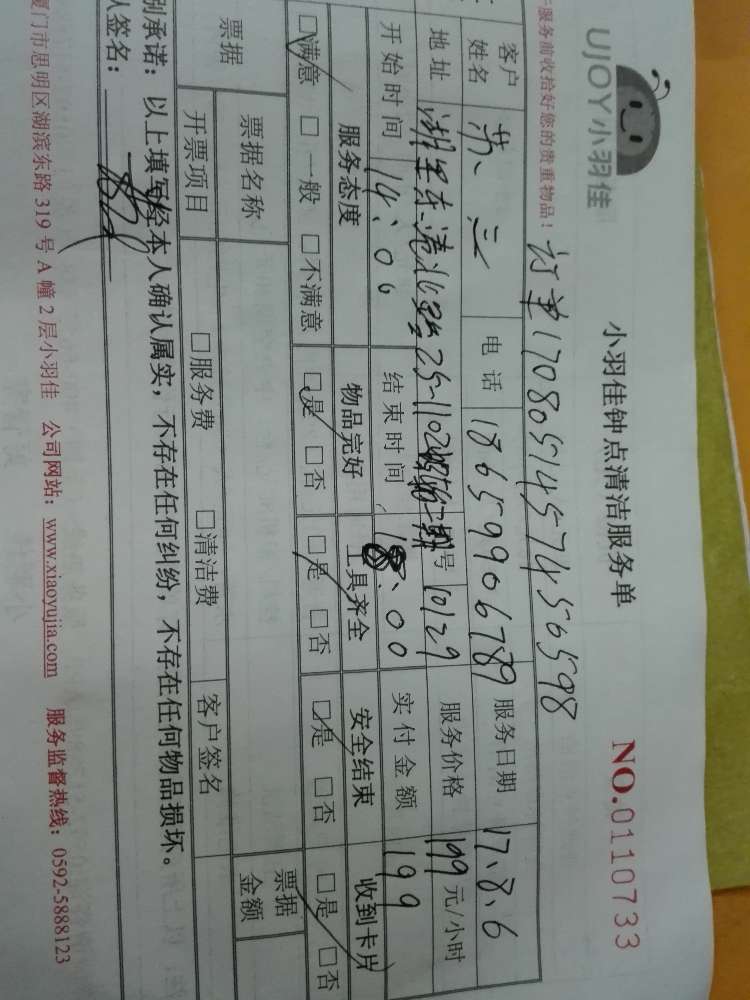 UJOY小羽佳
小羽佳钟点清洁服务单
NO.0110733
服务前收拾好您的贵重物品!
订单1708051457456598
客户姓名 苏、三 电话 18659906789 服务日期 17.8.6
地址 湖里东港北路25-1102 号 10129 服务价格 199 元/小时
开始时间 14:00 结束时间 18:00 实付金额 199
服务态度 物品完好 工具齐全 安全结束 收到卡片
□满意 □一般 □不满意 □是 □否 □是 □否 □是 □否 □是 □否
票据 票据名称 票据金额
开票项目 □服务费 □清洁费 客户签名
别承诺:以上填写经本人确认属实,不存在任何纠纷,不存在任何物品损坏。
人签名:
厦门市思明区湖滨东路 319 号 A 幢 2 层小羽佳 公司网站:www.xiaoyujia.com 服务监督热线:0592-5888123